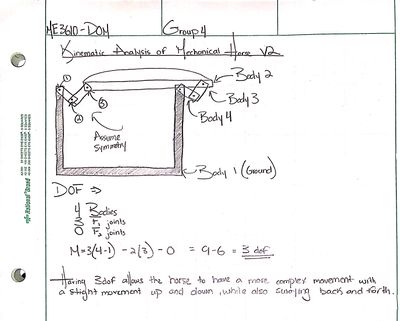 ME3610-DOM
Group 4
Kinematic Analysis of Mechanical Horse V2
Body 2
Body 3
Body 4
Assume
Symmetry
1
2
3
Body 1 (Ground)
DOF ⇒
4 Bodies
3 F₁ joints
0 F₂ joints
M=3(4-1) -2(3) -0 = 9-6 = 3 dof
Having 3dof allows the horse to have a more complex movement with
a slight movement up and down, while also swaying back and forth.